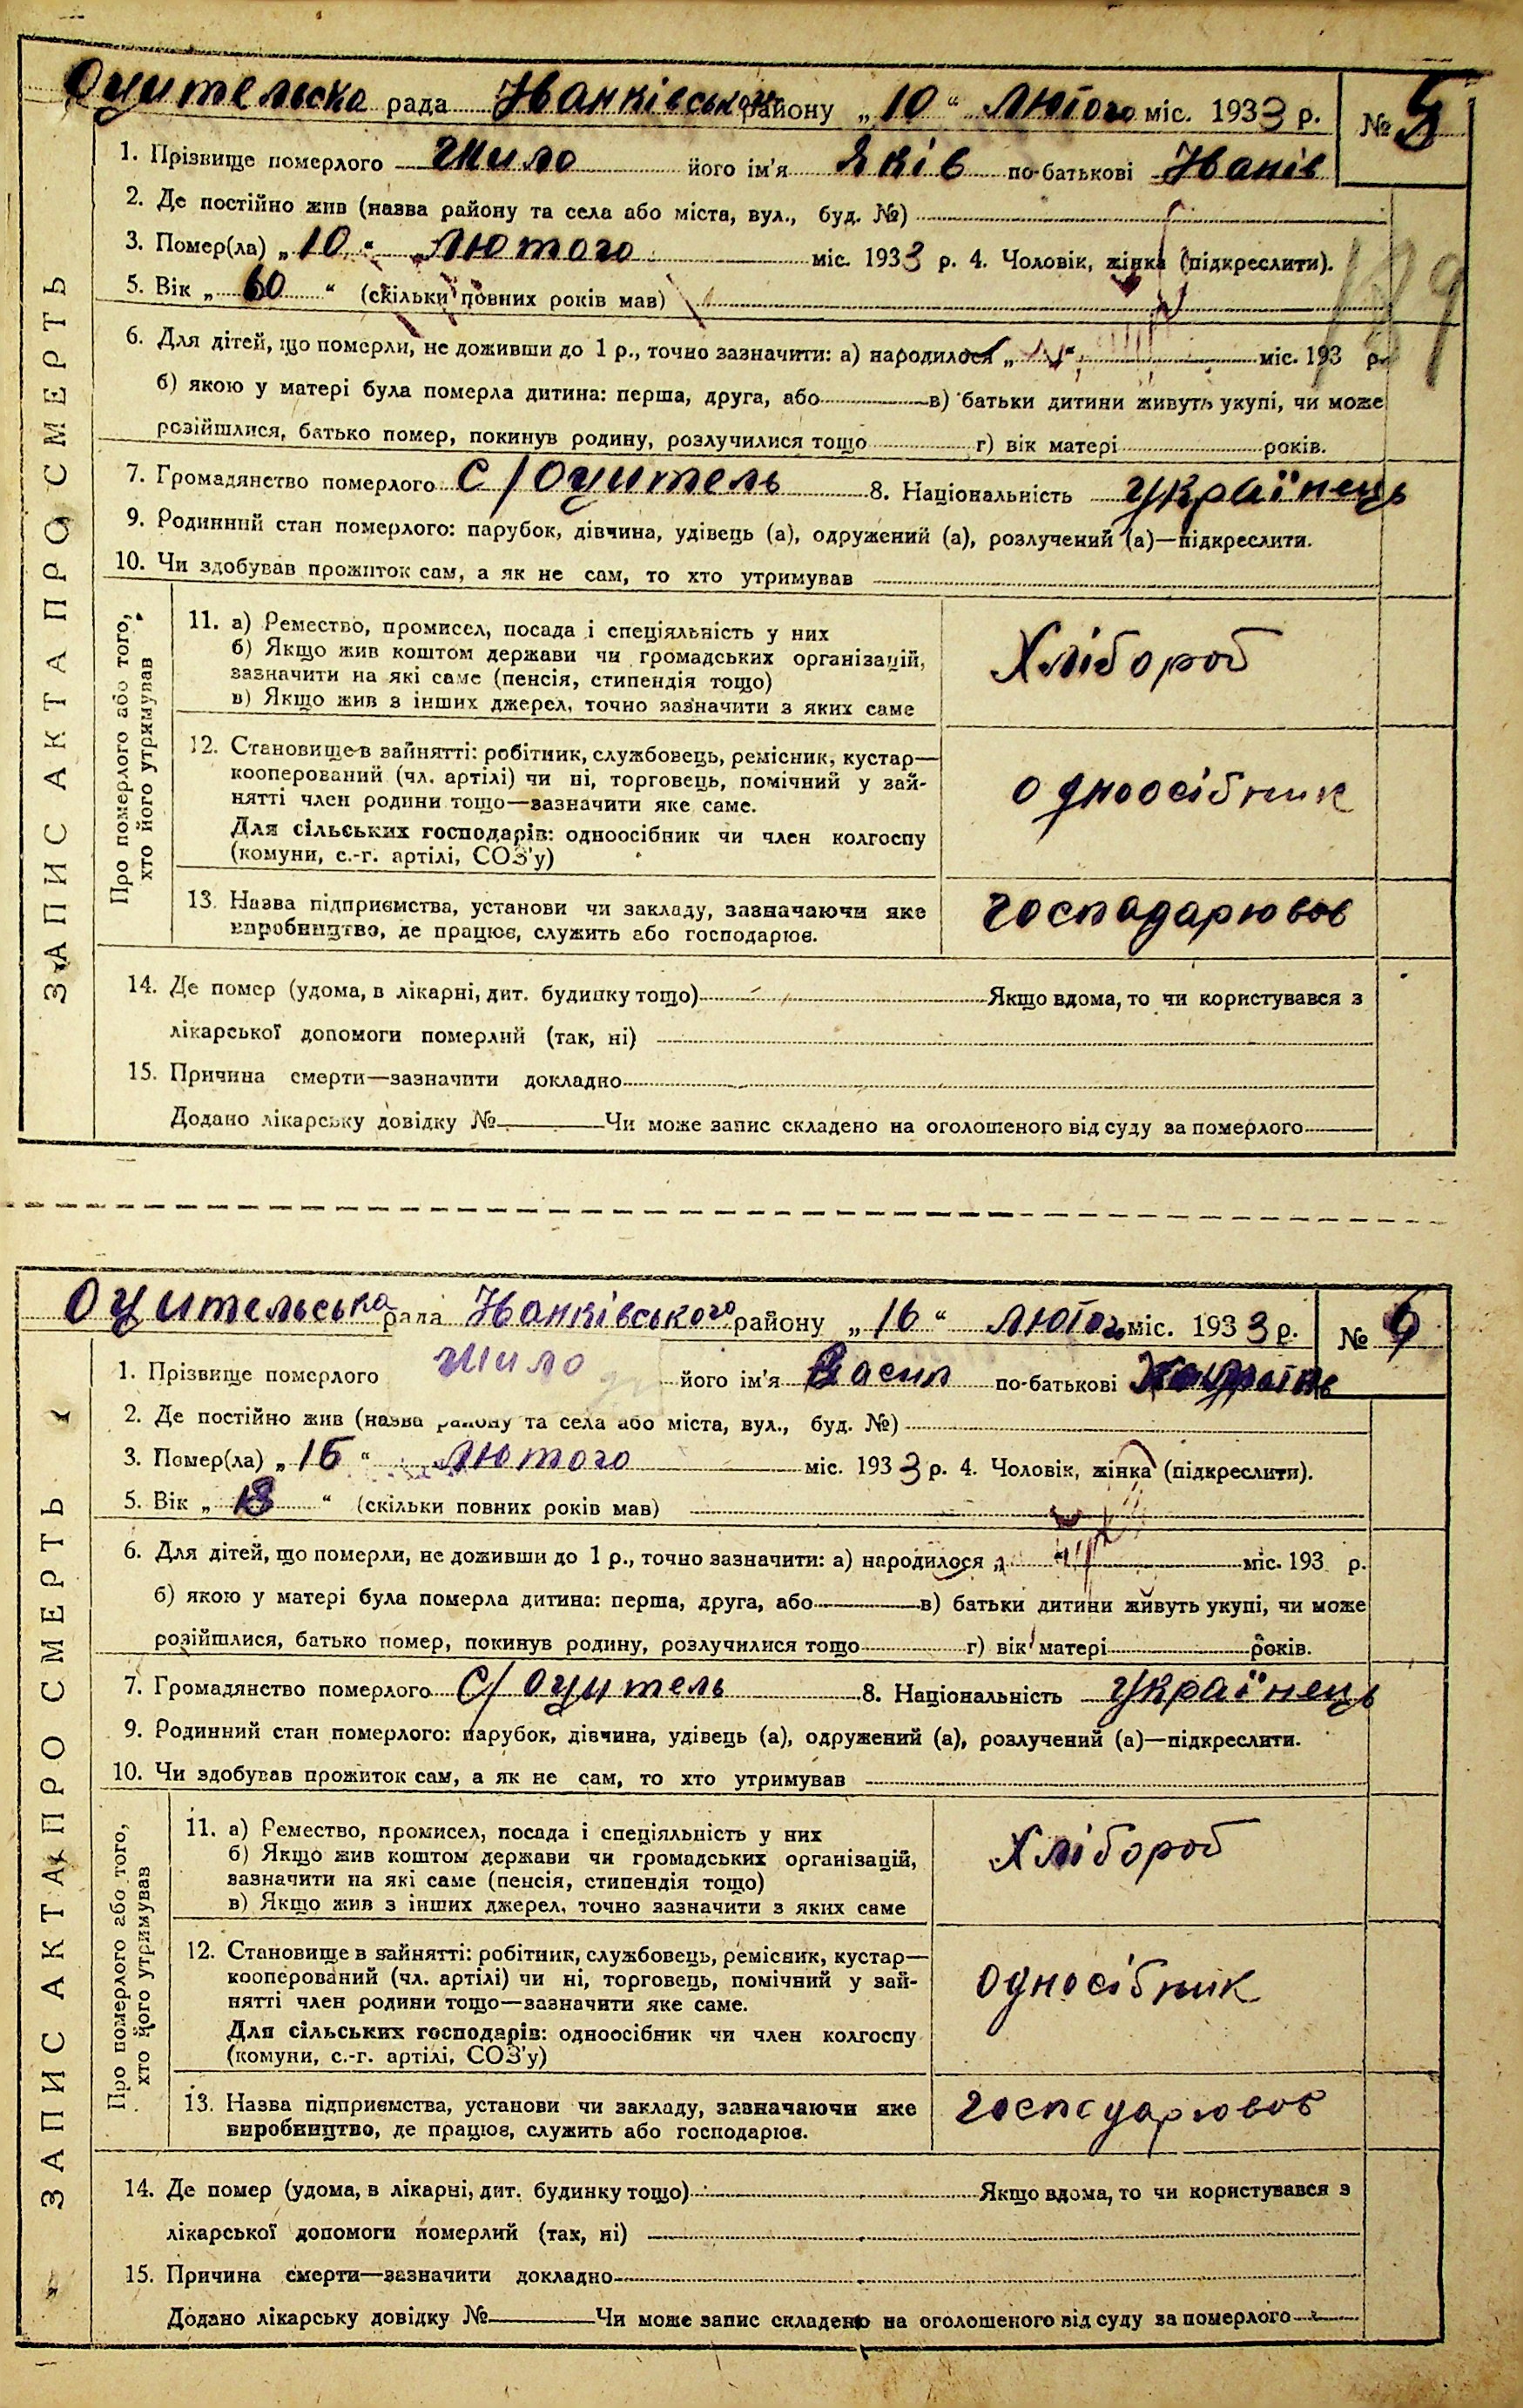 Оцительска рада Іванківського району „10“ Лютого міс. 1933 р. № 5
1. Прізвище померлого Жило його ім'я Яків по-батькові Іванів
2. Де постійно жив (назва району та села або міста, вул., буд. №)
3. Помер(ла) „10“ Лютого міс. 1933 р. 4. Чоловік, жінка (підкреслити).
5. Вік „60“ (скільки повних років мав)
189
6. Для дітей, що померли, не доживши до 1 р., точно зазначити: а) народилося „ “ міс. 193 р.
б) якою у матері була померла дитина: перша, друга, або в) батьки дитини живуть укупі, чи може
розійшлися, батько помер, покинув родину, розлучилися тощо г) вік матері років.
7. Громадянство померлого с/Оцитель 8. Національність українець
9. Родинний стан померлого: парубок, дівчина, удівець (а), одружений (а), розлучений (а)—підкреслити.
10. Чи здобував прожиток сам, а як не сам, то хто утримував
ЗАПИС АКТА ПРО СМЕРТЬ
Про померлого або того,
хто його утримував
11. а) Ремество, промисел, посада і спеціяльність у них
б) Якщо жив коштом держави чи громадських організацій,
зазначити на які саме (пенсія, стипендія тощо)
в) Якщо жив з інших джерел, точно зазначити з яких саме
Хлібороб
12. Становище в зайнятті: робітник, службовець, ремісник, кустар—
кооперований (чл. артілі) чи ні, торговець, помічний у зай-
нятті член родини тощо—зазначити яке саме.
Для сільських господарів: одноосібник чи член колгоспу
(комуни, с.-г. артілі, СОЗ'у)
одноосібник
13. Назва підприємства, установи чи закладу, зазначаючи яке
виробництво, де працює, служить або господарює.
господарював
14. Де помер (удома, в лікарні, дит. будинку тощо) Якщо вдома, то чи користувався з
лікарської допомоги померлий (так, ні)
15. Причина смерти—зазначити докладно
Додано лікарську довідку № Чи може запис складено на оголошеного від суду за померлого
Оцительська рада Іванківського району „16“ лютого міс. 1933 р. № 6
1. Прізвище померлого Жило його ім'я Васил по-батькові
2. Де постійно жив (назва району та села або міста, вул., буд. №)
3. Помер(ла) „16“ Лютого міс. 1933 р. 4. Чоловік, жінка (підкреслити).
5. Вік „18“ (скільки повних років мав)
6. Для дітей, що померли, не доживши до 1 р., точно зазначити: а) народилося „ “ міс. 193 р.
б) якою у матері була померла дитина: перша, друга, або в) батьки дитини живуть укупі, чи може
розійшлися, батько помер, покинув родину, розлучилися тощо г) вік матері років.
7. Громадянство померлого с/Оцитель 8. Національність українець
9. Родинний стан померлого: парубок, дівчина, удівець (а), одружений (а), розлучений (а)—підкреслити.
10. Чи здобував прожиток сам, а як не сам, то хто утримував
ЗАПИС АКТА ПРО СМЕРТЬ
Про померлого або того,
хто його утримував
11. а) Ремество, промисел, посада і спеціяльність у них
б) Якщо жив коштом держави чи громадських організацій,
зазначити на які саме (пенсія, стипендія тощо)
в) Якщо жив з інших джерел, точно зазначити з яких саме
Хлібороб
12. Становище в зайнятті: робітник, службовець, ремісник, кустар—
кооперований (чл. артілі) чи ні, торговець, помічний у зай-
нятті член родини тощо—зазначити яке саме.
Для сільських господарів: одноосібник чи член колгоспу
(комуни, с.-г. артілі, СОЗ'у)
односібник
13. Назва підприємства, установи чи закладу, зазначаючи яке
виробництво, де працює, служить або господарює.
господарював
14. Де помер (удома, в лікарні, дит. будинку тощо) Якщо вдома, то чи користувався з
лікарської допомоги померлий (так, ні)
15. Причина смерти—зазначити докладно
Додано лікарську довідку № Чи може запис складено на оголошеного від суду за померлого